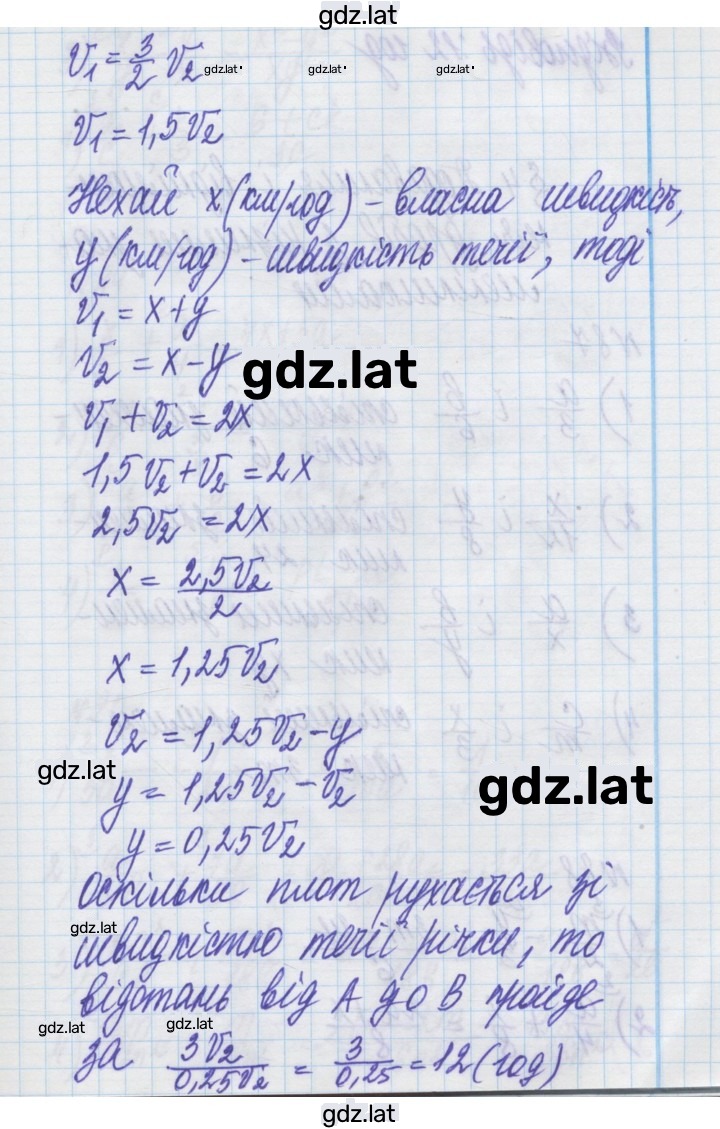 gdz.lat
V₁ = 3/2 V₂ gdz.lat· gdz.lat· gdz.lat·
V₁ = 1,5V₂
Нехай x (км/год) – власна швидкість,
y (км/год) – швидкість течії, тоді
V₁ = x + y
V₂ = x – y
gdz.lat
V₁ + V₂ = 2x
1,5V₂ + V₂ = 2x
2,5V₂ = 2x
x = 2,5V₂/2
x = 1,25V₂
V₂ = 1,25V₂ – y
gdz.lat
y = 1,25V₂ – V₂
gdz.lat
y = 0,25V₂
Оскільки плот рухається зі
gdz.lat
швидкістю течії річки, то
відстань від А до В пройде
gdz.lat gdz.lat
за 3V₂/0,25V₂ = 3/0,25 = 12 (год)
gdz.lat